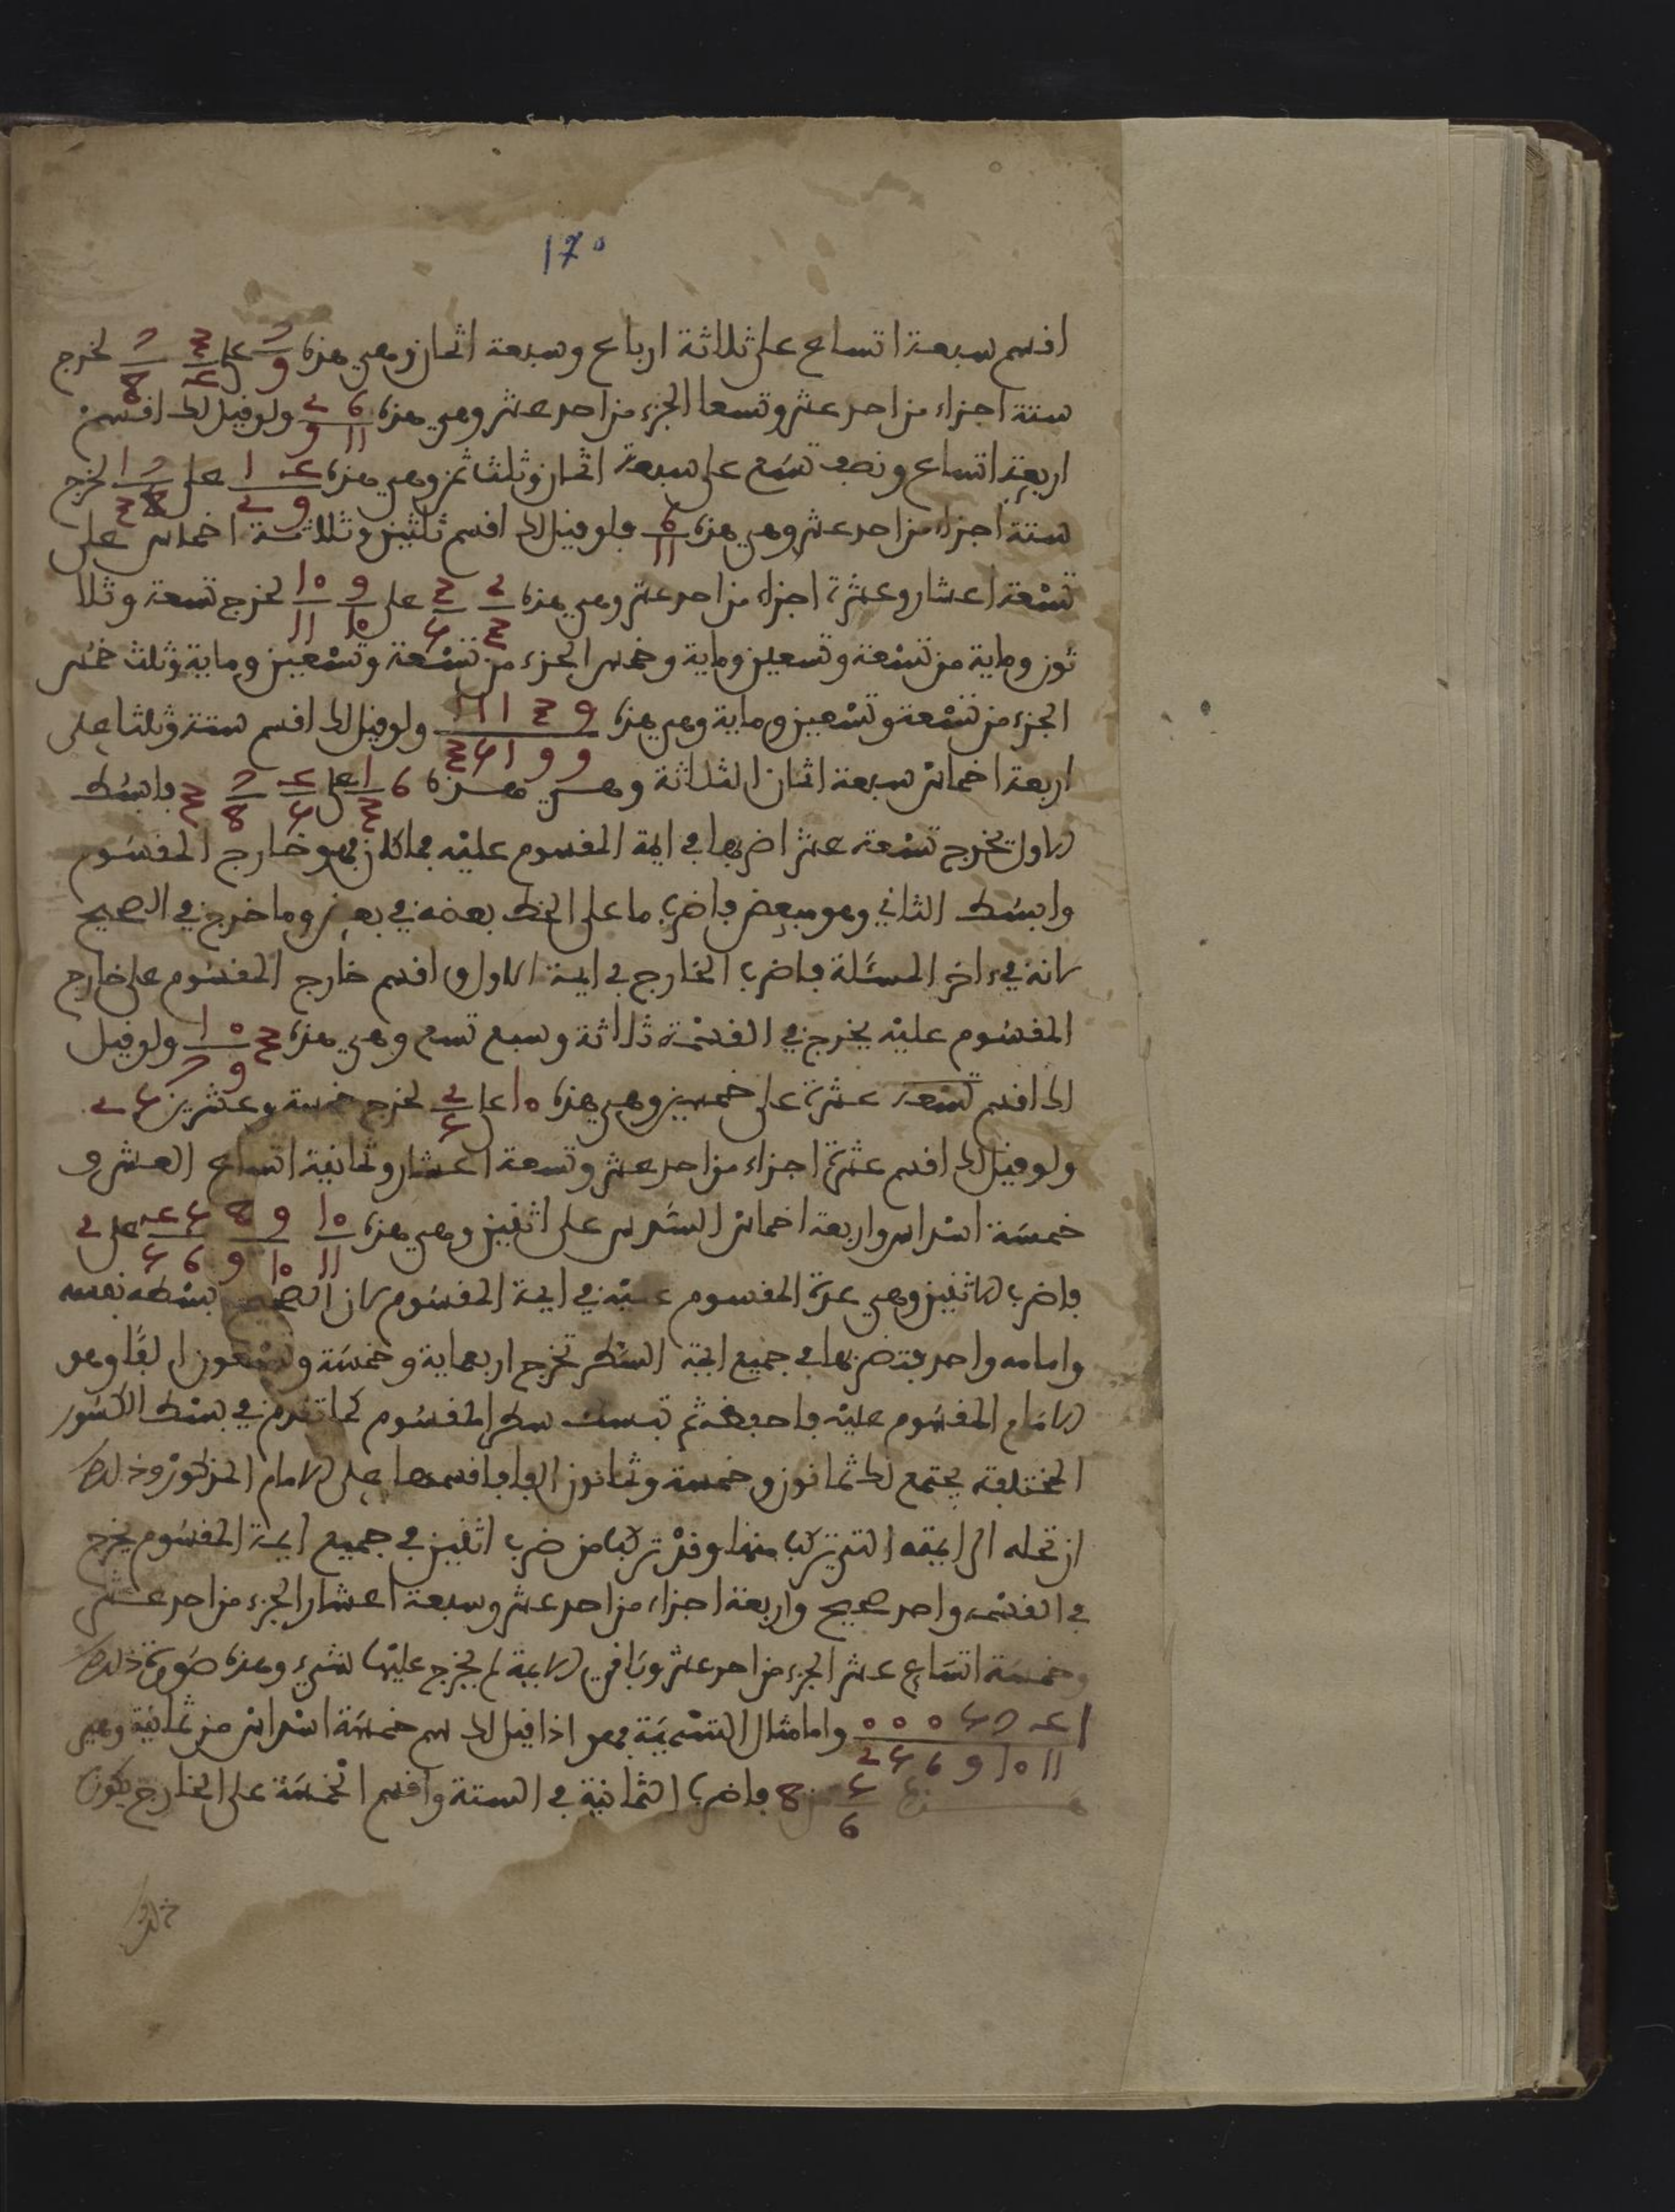 170
اقسم سبعة اتساع على ثلاثة ارباع وسبعة اثمان وهي هذه 7/9 على 3/4 7/8 تخرج
ستة اجزاء من احد عشر وتسعا الجزء من احد عشر وهي هذه 6 2/11 9 ولو قيل لك اقسم
اربعة اتساع ونصف تسع على سبعة اثمان وثلث ثمن وهي هذه 4 1/9 2 على 7 1/8 3 تخرج
ستة اجزاء من احد عشر وهي هذه 6/11 ولو قيل لك اقسم ثلثين وثلاثة اخماس على
تسعة اعشار وعشرة اجزاء من احد عشر وهي هذه 2/3 3/5 على 9/10 10/11 تخرج تسعة وثلا
ثون وماية من تسعة وتسعين وماية وخمس الجزء من تسعة وتسعين وماية وثلث خمس
الجزء من تسعة وتسعين وماية وهي هذه 9 3 1 1 1/9 9 1 5 3 ولو قيل لك اقسم ستة وثلثا على
اربعة اخماس سبعة اثمان الثلاثة وهي هذه 6 1/3 على 4/5 7/8 3 فابسط
الاول تخرج تسعة عشر اضربها في ايمة المقسوم عليه فما كان فهو خارج المقسوم
وابسط الثاني وهو مبعض فاضرب ما على الخط بعضه في بعض وما خرج في الصحيح
لانه في ءاخر المسئلة فاضرب الخارج في ايمة الاول واقسم خارج المقسوم على خارج
المقسوم عليه يخرج في القسمة ثلاثة وسبع تسع وهي هذه 3 0 1/9 7 ولو قيل
لك اقسم عشرة على خمسين وهي هذه 10 على 2/5 تخرج خمسة وعشرين 2 5
ولو قيل لك اقسم عشرة اجزاء من احد عشر وتسعة اعشار وثمانية اتساع العشر و
خمسة اسداس واربعة اخماس السدس على اثنين وهي هذه 10/11 9 8/10 9 5 4/6 5 على 2
فاضرب الاثنين وهي عدة المقسوم عليه في ايمة المقسوم لان الصحيح بسطه نفسه
وامامه واحد فتضربها في جميع ايمة السطر تخرج اربعماية وخمسة وتسعون الفا وهو
الامام المقسوم عليه فاحفظه ثم تبسط سطر المقسوم كما تقدم في بسط الكسور
المختلفة يجتمع لك ثمانون وخمسة وثمانون الفا فاقسمها على الامام المذكور وذلك
ان تحله الى ايمته التي تركب منها وقد تركب من ضرب اثنين في جميع ايمة المقسوم يخرج
في القسمة واحد صحيح واربعة اجزاء من احد عشر وسبعة اعشار الجزء من احد عشر
وخمسة اتساع عشر الجزء من احد عشر وباقي الايمة لم يخرج عليها شيء وهذه صورة ذلك
1 4 7 5 0 0 0/11 10 9 6 5 2 واما مثال التسمية فهو اذا قيل لك سم خمسة اسداس من ثمانية وهي
هذه 5/6 من 8 فاضرب الثمانية في الستة واقسم الخمسة على الخارج يكون